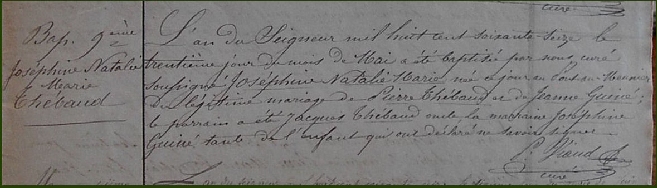 curé
Bap. 9ème
Joséphine Natalie
Marie
Thébaud
L'an du Seigneur mil huit cent soixante-seize le
trentième jour du mois de Mai a été baptisée par nous curé
soussigné Joséphine Natalie Marie né ce jour au
du légitime mariage de Pierre Thébaud et de Jeanne Guiné;
le parrain a été Jacques Thébaud oncle la marraine Joséphine
Guiné tante de l'enfant qui ont déclaré ne savoir signer.
curé